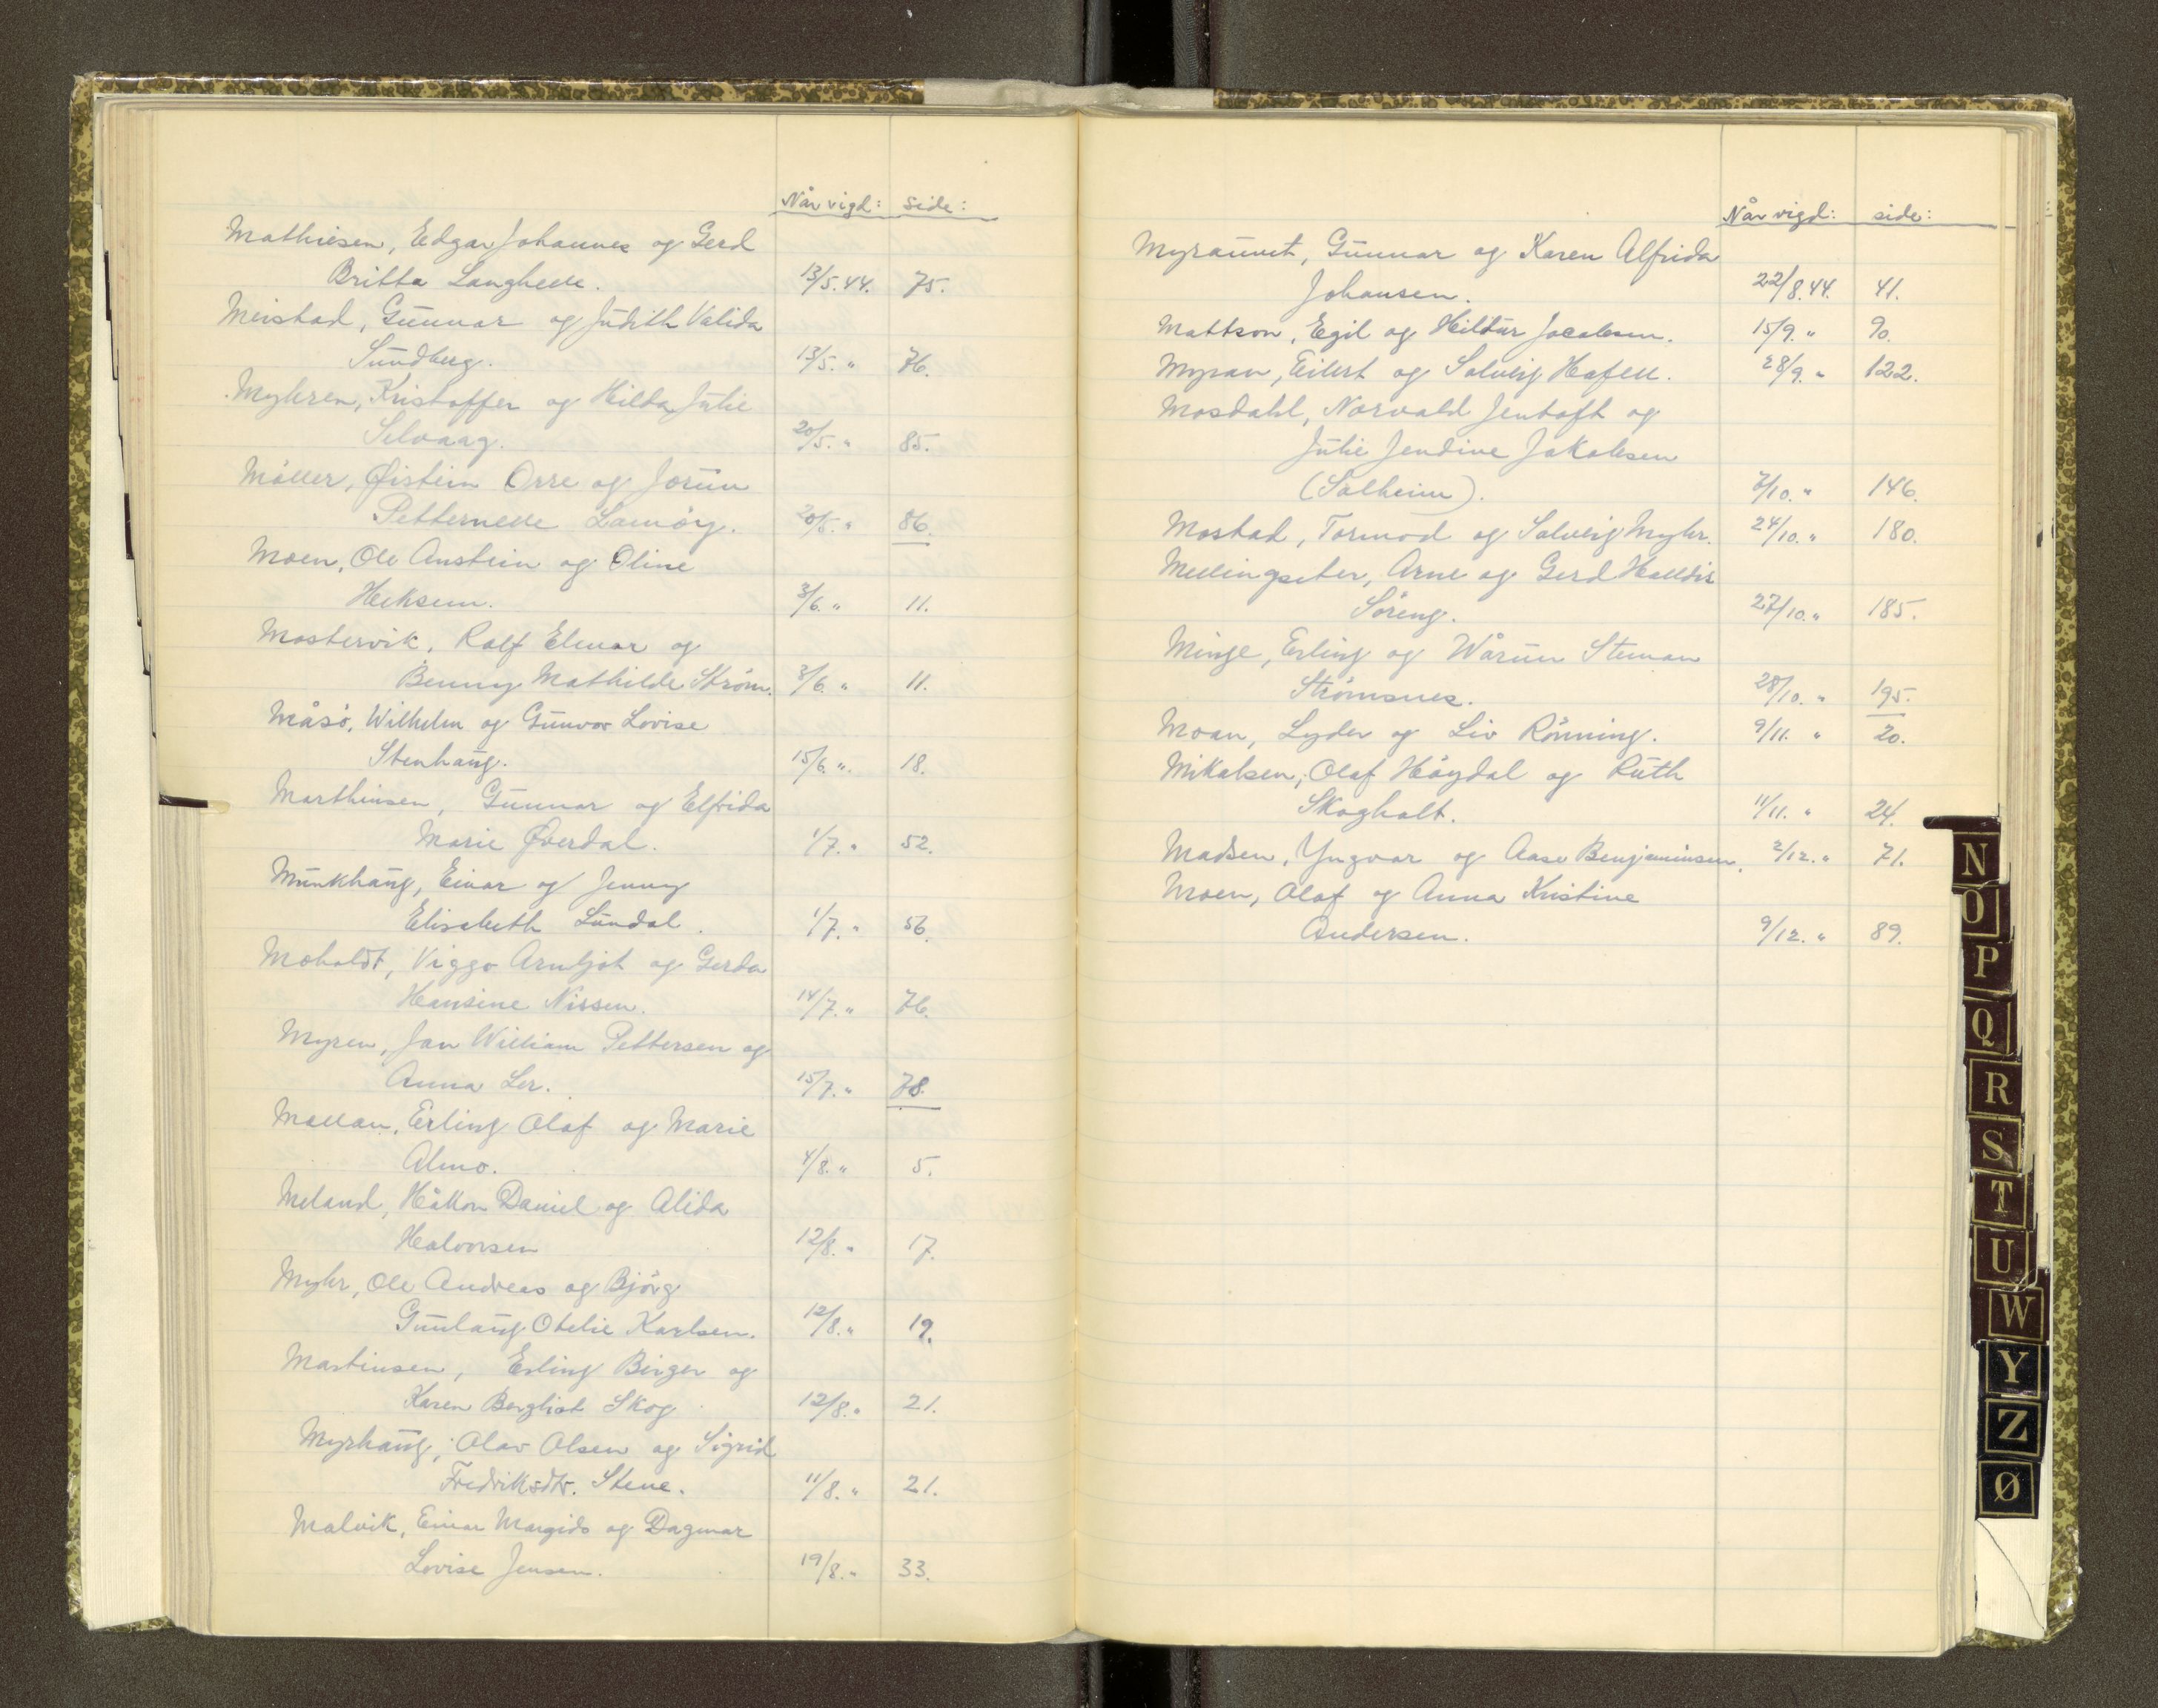 Når vigd: Side:
Mathiesen, Edgar Johannes og Gerd
Britta Langhelle. 13/5.44. 75.
Meistad, Gunnar og Judith Valida
Sundberg. 13/5. " 76.
Myhren, Kristoffer og Hilda Julie
Selvaag. 20/5. " 85.
Möller, Øistein Orre og Jorun
Petternelle Lamöy. 20/5. " 86.
Moen, Ole Anstein og Oline
Heksem. 3/6. " 11.
Mostervik, Ralf Elmar og
Benny Mathilde Strøm. 3/6. " 11.
Måsö, Wilhelm og Gunvor Lovise
Stenhaug. 15/6. ". 18.
Marthinsen, Gunnar og Elfrida
Marie Øverdal. 1/7. " 52.
Munkhaug, Einar og Jenny
Elisabeth Lundal. 1/7. " 56.
Moholdt, Viggo Arnljot og Gerda
Hansine Nissen. 14/7. " 76.
Myren, Jan William Pettersen og
Anna Ler. 15/7. " 78.
Mollan, Erling Olaf og Marie
Almo. 4/8. " 5.
Meland, Håkon Daniel og Alida
Halvorsen 12/8. " 17.
Myhr, Ole Andreas og Bjørg
Gunlaug Otelie Karlsen. 12/8. " 19.
Martinsen, Erling Birger og
Karen Bergliot Skog 12/8. " 21.
Myrhaug, Olav Olsen og Sigrid
Fredriksdtr. Stene. 11/8. " 21.
Malvik, Einar Margido og Dagmar
Lovise Jensen. 19/8. " 33.
Når vigd: side:
Myraunet, Gunnar og Karen Alfrida
Johansen. 22/8.44. 41.
Mattson, Egil og Hildur Jacobsen. 15/9. " 90.
Myran, Eilert og Solveig Hafell. 28/9. " 122.
Mosdahl, Norvald Jentoft og
Julie Jendine Jakobsen
(Solheim). 7/10. " 146.
Mostad, Tormod og Solveig Myhr. 24/10. " 180.
Mellingseter, Arne og Gerd Halldis
Söreng. 27/10. " 185.
Minge, Erling og Wårun Steman
Strömsnes. 28/10. " 195.
Moan, Lyder og Liv Rönning. 9/11. " 20.
Mikalsen, Olaf Höydal og Ruth
Skogholt. 11/11. " 24.
Madsen, Yngvar og Aase Benjaminsen. 2/12. " 71.
Moen, Olaf og Anna Kristine
Andersen. 9/12. " 89.
N
O
P
Q
R
S
T
U
W
Y
Z
Ø